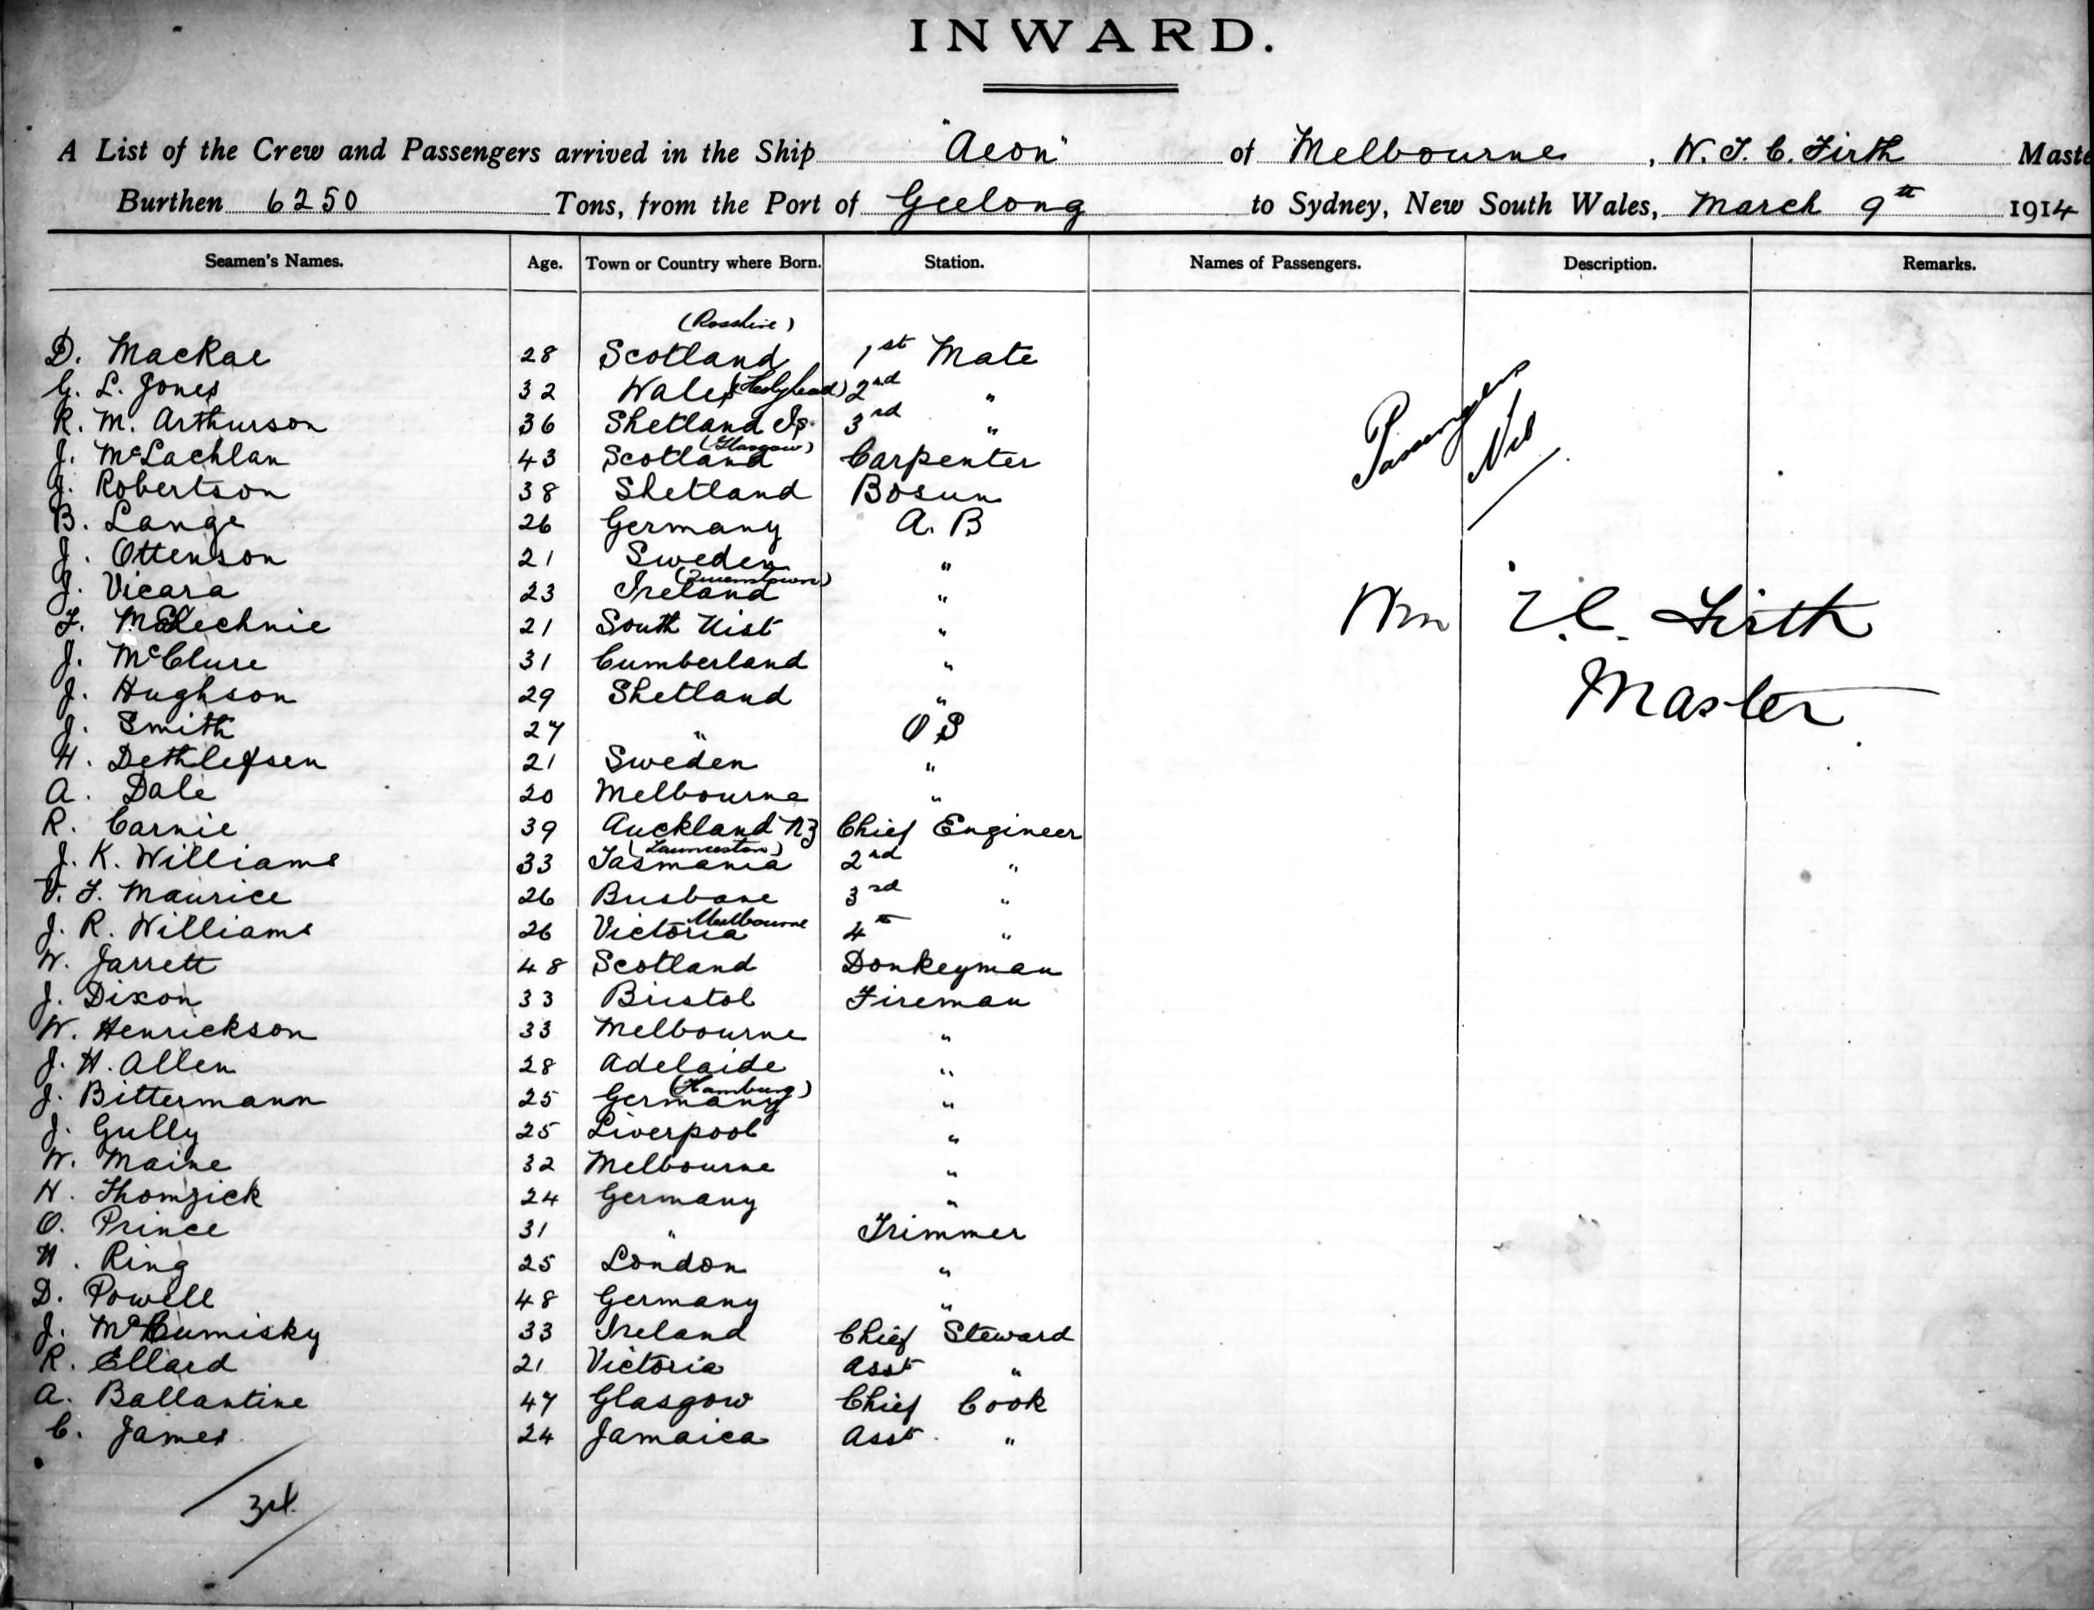 INWARD.
A List of the Crew and Passengers arrived in the Ship "Aeon" of Melbourne, W. T. C. Firth Maste
Burthen 6250 Tons, from the Port of Geelong to Sydney, New South Wales, March 9th 1914
Seamen's Names. Age. Town or Country where Born. Station. Names of Passengers. Description. Remarks.
(Rosshire)
D. MacRae 28 Scotland 1st Mate
G. L. Jones 32 Wales (Holyhead) 2nd "
R. M. Arthurson 36 Shetland Is. 3rd "
(Glasgow)
J. McLachlan 43 Scotland Carpenter
J. Robertson 38 Shetland Bosun
B. Lange 26 Germany A. B
J. Ottenson 21 Sweden "
(Queenstown)
J. Vicara 23 Ireland "
F. 21 South Uist "
J. McClure 31 Cumberland "
J. Hughson 29 Shetland "
J. Smith 27 " O S
H. Dethlefsen 21 Sweden "
A. Dale 20 Melbourne "
R. Carnie 39 Auckland NZ Chief Engineer
(Launceston)
J. K. Williams 33 Tasmania 2nd "
F. Maurice 26 Brisbane 3rd "
Melbourne
J. R. Williams 26 Victoria 4th "
W. Jarrett 48 Scotland Donkeyman
J. Dixon 33 Bristol Fireman
W. Henrickson 33 Melbourne "
J. H. Allen 28 Adelaide "
(Hamburg)
J. Bittermann 25 Germany "
J. Gully 25 Liverpool "
W. Maine 32 Melbourne "
H. Thomzick 24 Germany "
O. Prince 31 " Trimmer
H. Ring 25 London "
D. Powell 48 Germany "
J. McCumisky 33 Ireland Chief Steward
R. Ellard 21 Victoria Asst "
A. Ballantine 47 Glasgow Chief Cook
C. James 24 Jamaica Asst. "
Passengers
Nil
Wm T. C. Firth
Master